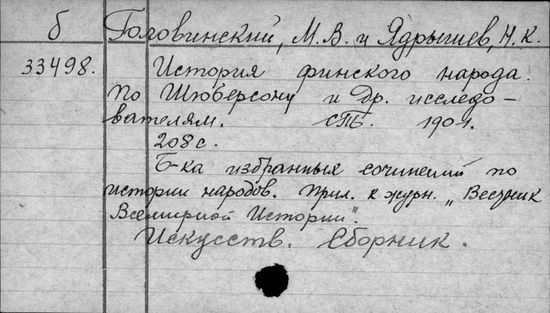 б Головинский, М.В. и Ядрышев, Н.К.
33498. История финского народа.
По Шюберсону и др. исследо-
вателям. СПБ. 1901.
208 с.
Б-ка избранных сочинений по
истории народов. Прил. к журн. „Вестник
Всемирной Истории".
Искусств. Сборник.